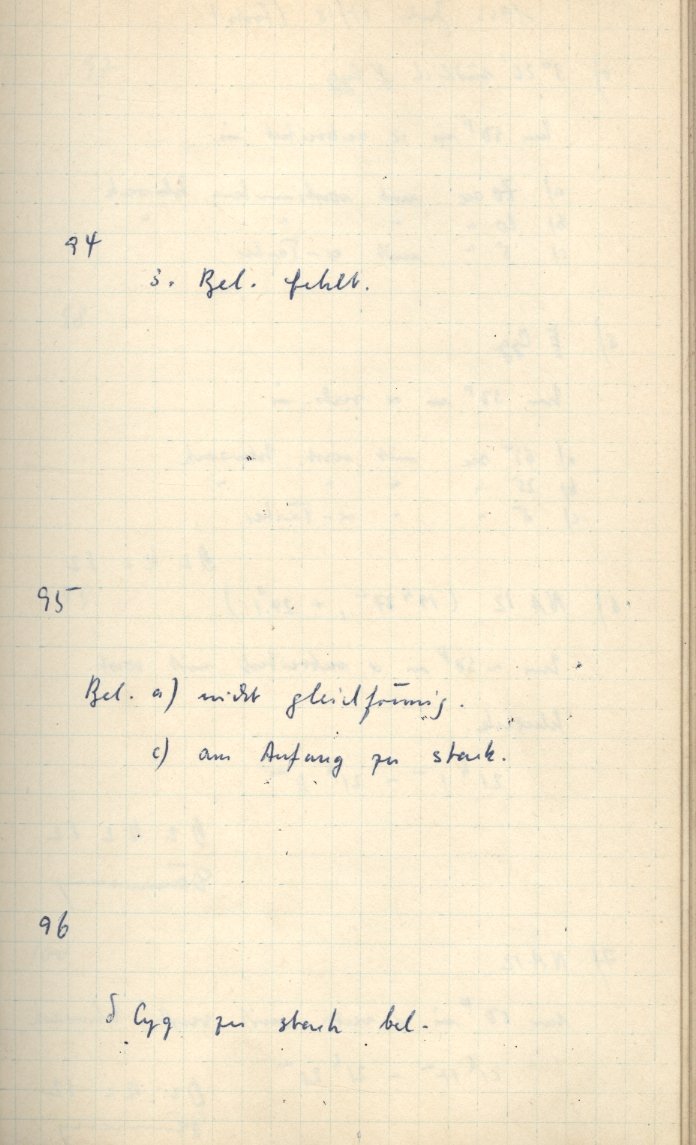 94
3. Bel. fehlt.
95
Bel. a) nicht gleichförmig.
c) am Anfang zu stark.
96
δ Cyg zu stark bel.